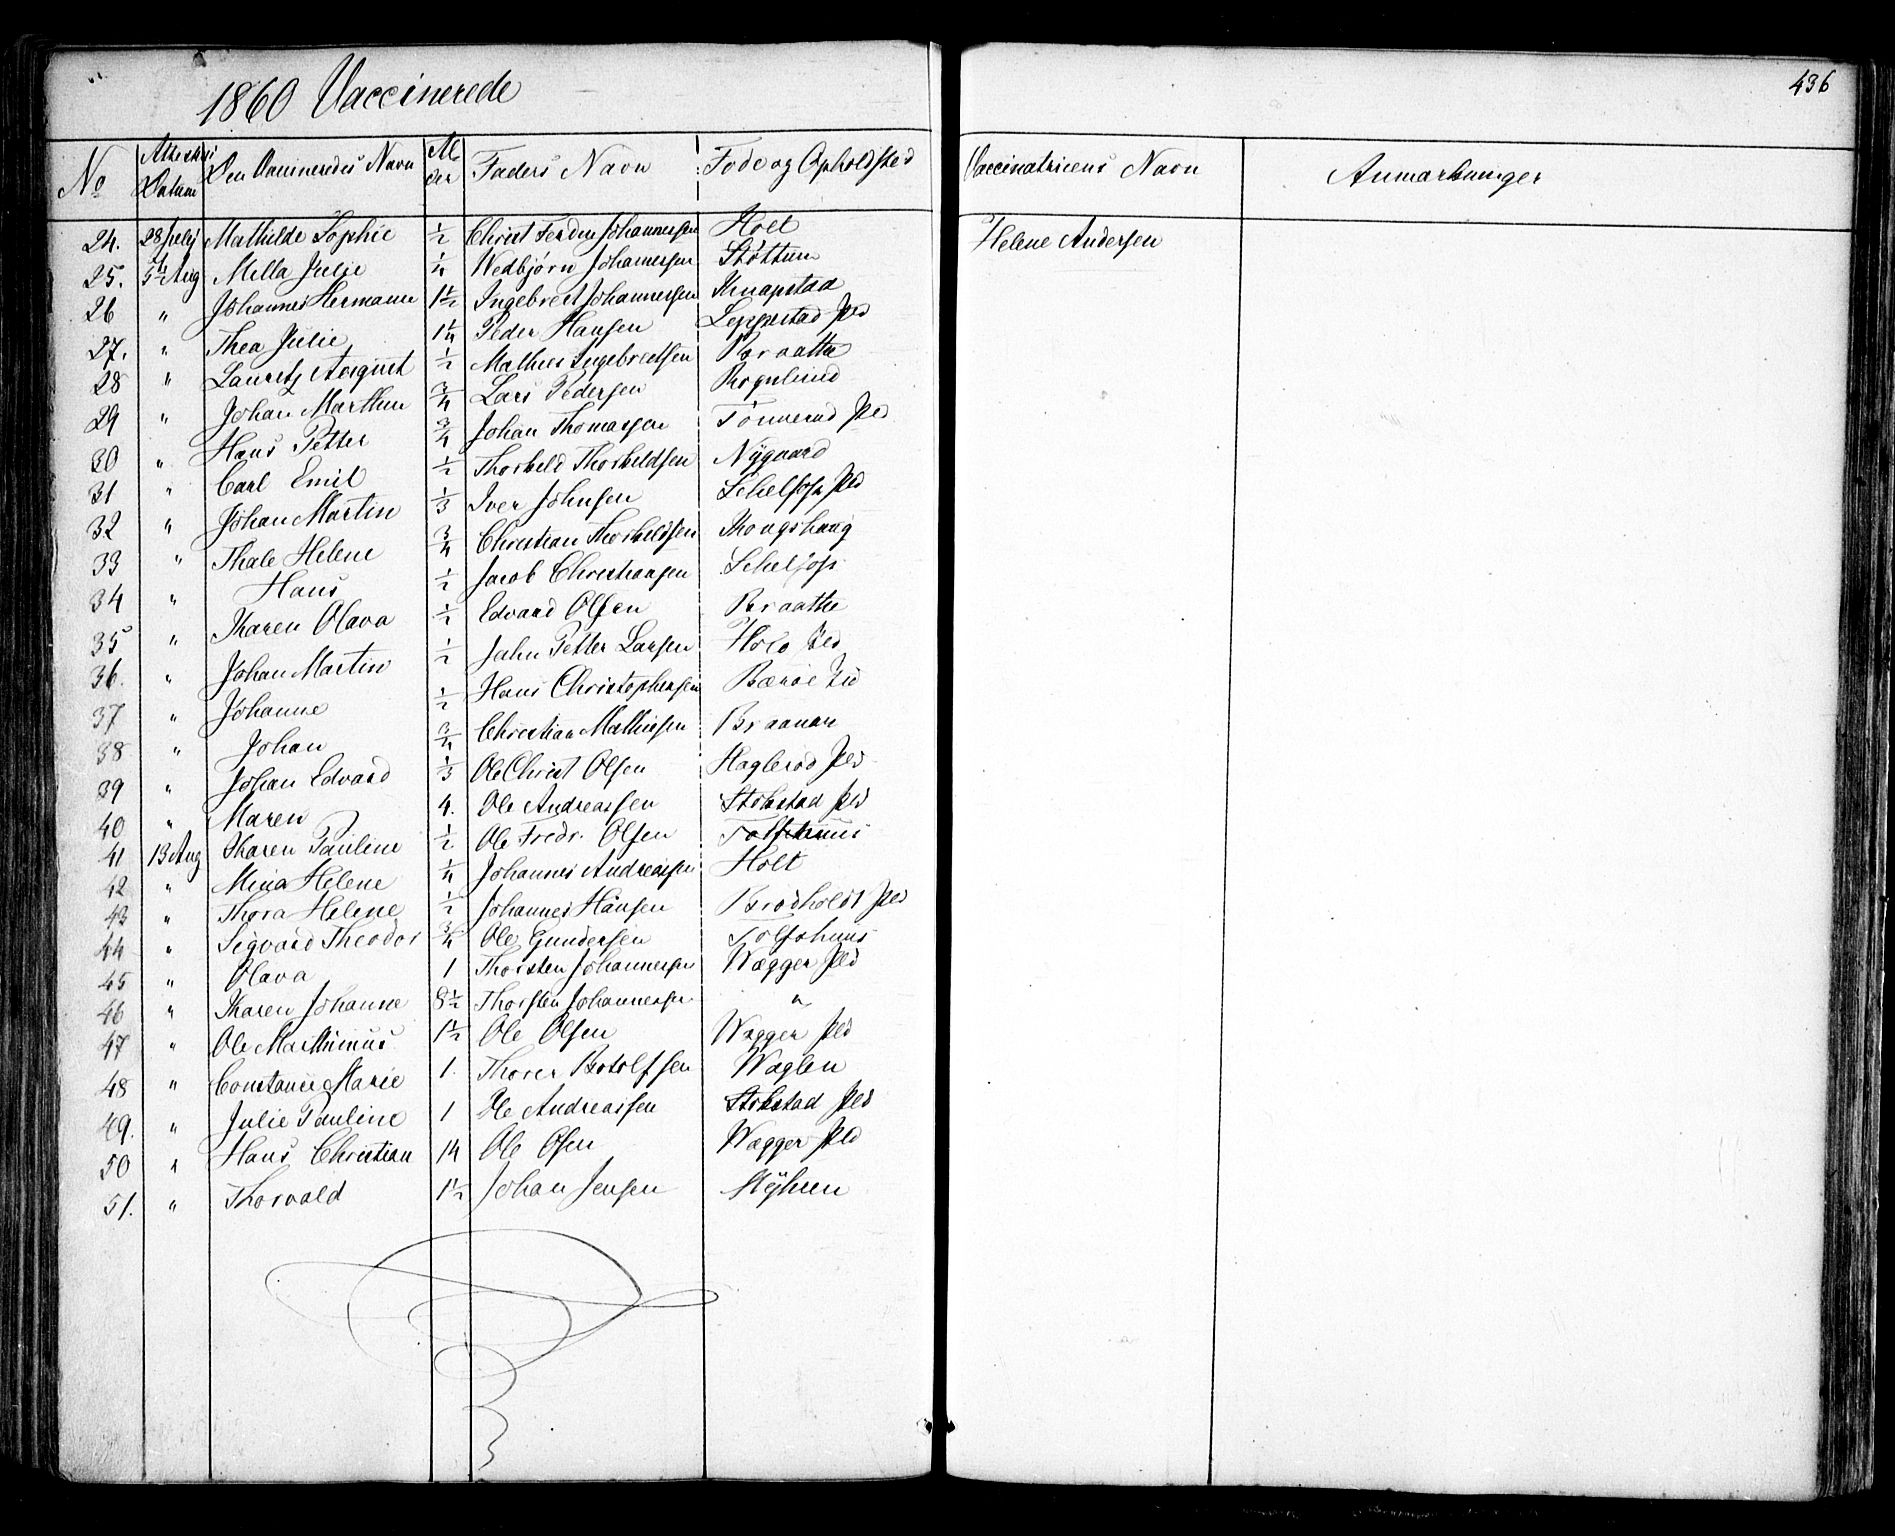 436
1860 Vaccinerede
No Attestens Datum Den Vaccineredes Navn Alder Faders Navn Føde og Opholdsted Vaccinatricens Navn Anmærkninger
24. 28 July Mathilde Sophie 1/2 Christ Ferdin Johannessen Holt Helene Andersen
25. 5te Aug Milla Julie 1/4 Wedbjørn Johannessen Støttum
26 " Johannes Hermann 1 1/2 Ingebret Johannessen Knapstad
27. " Thea Julie 1 1/4 Peder Hansen Leppestad Pld
28 " Lauretz August 1/2 Mathies Ingebretsen Braatha
29 " Johan Marthin 3/4 Lars Pedersen Rognlund
30 " Hans Petter 3/4 Johan Thomassen Tønnerud Pld
31 " Carl Emil 1/2 Thorkeld Thorkeldsen Nygaard
32 " Johan Martin 1/3 Iver Johnsen Schelfoss Pld
33 " Thale Helene 3/4 Christian Thorkeldsen Kongshaug
34 " Hans 1/2 Jacob Christiansen Schelfoss
35 " Karen Olava 1/2 Edvard Olsen Braathe
36. " Johan Martin 1/2 John Petter Larsen Holo Pld
37 " Johanne 1/2 Hans Christophersen Bærøe Pld
38 " Johan 3/4 Christian Mathiesen Braanan
39 " Johan Edvard 1/3 Ole Christ Olsen Haglerød Pld
40 " Maren 4. Ole Andreassen Stokstad Pld
41 13 Aug Karen Pauline 1/2 Ole Fredr. Olsen Tolfshuus
42 " Mina Helene 1/4 Johannes Andreassen Holt
43 " Thora Helene 1/2 Johannes Hansen Brødholdt Pld
44 " Sigvard Theodor 3/4 Ole Gundersen Tolfshuus
45 " Olava 1 Thorsten Johannessen Wægger Pld
46 " Karen Johanne 8 1/2 Thorsten Johannessen "
47 " Ole Marthinius 1 1/2 Ole Olsen Wægger Pld
48 " Constance Marie 1. Thorer Botolfsen Waglen
49. " Julie Pauline 1 Ole Andreassen Stokstad Pld
50 " Hans Christian 14 Ole Olsen Wægger Pld
51. " Thorvald 1 1/2 Johan Jensen Myhren